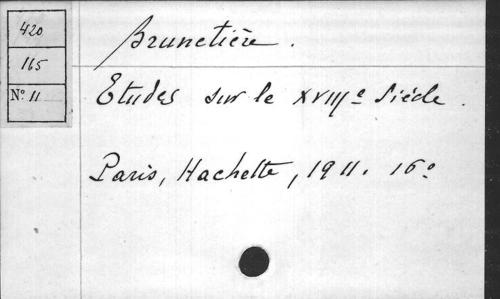 420
165
No. 11
Brunetière.
Etudes sur le XVIIIe Siécle.
Paris, Hachette, 1911. 16o